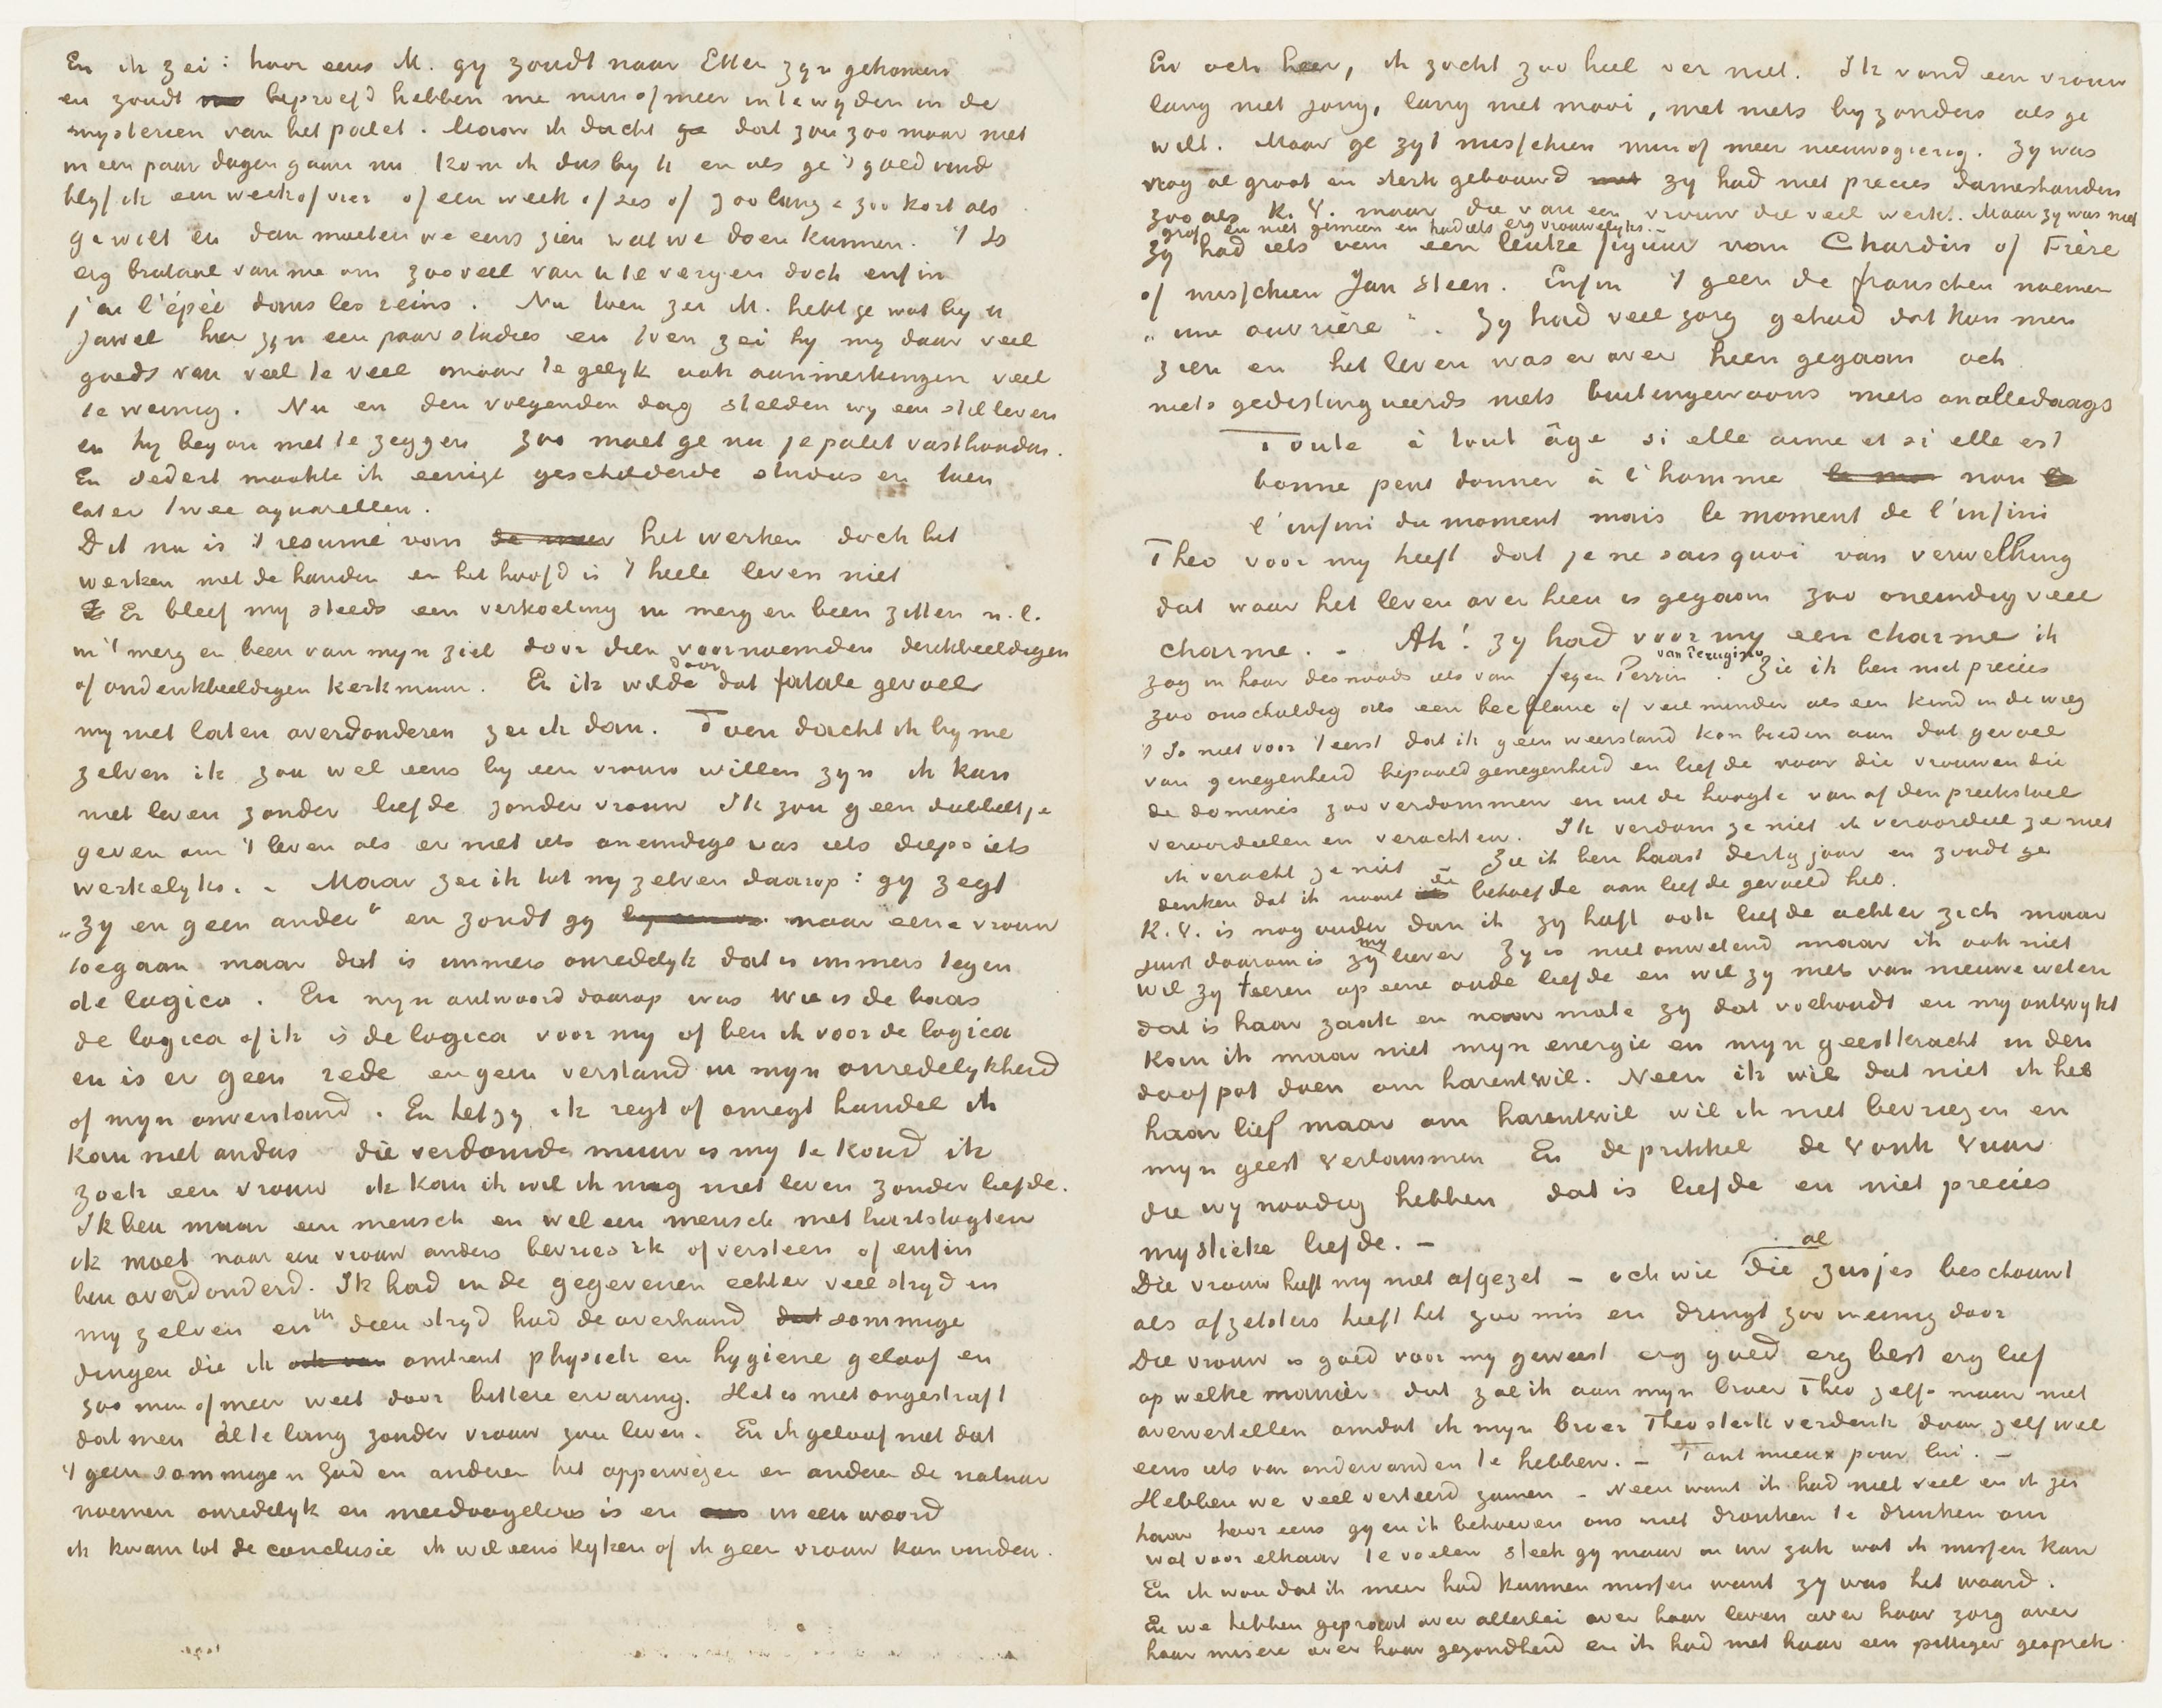 En ik zei: hoor eens M. gy zoudt naar Etten zyn gekomen
en zoudt beproefd hebben me min of meer in te wyden in de
mysterien van het palet. Maar ik dacht dat zou zoo maar niet
in een paar dagen gaan nu kom ik dus by U en als ge 't goed vindt
blyf ik een week of vier of een week of zes of zoo lang & zoo kort als
ge wilt en dan moeten we eens zien wat we doen kunnen. 't Is
erg brutaal van me om zooveel van U te vergen doch enfin
j'ai l'épée dans les reins. Nu toen zei M. hebt ge wat by U
Jawel hier zyn een paar studies en toen zei hy my daar veel
goeds van veel te veel maar te gelyk ook aanmerkingen veel
te weinig. Nu en den volgenden dag stelden wy een stilleven
en hy begon met te zeggen zoo moet ge nu je palet vasthouden.
En sedert maakte ik eenige geschilderde studies en toen
later twee aquarellen.
Dit nu is 't resumé van het werken doch het
werken met de handen en het hoofd is 't heele leven niet
Er bleef my steeds een verkoeling in merg en been zitten n.l.
in 't merg en been van myn ziel door dien voornoemden denkbeeldigen
of ondenkbeeldigen kerkmuur. En ik wilde door dat fatale gevoel
my niet laten overdonderen zei ik dan. Toen dacht ik by me
zelven ik zou wel eens by een vrouw willen zyn ik kan
niet leven zonder liefde zonder vrouw Ik zou geen dubbeltje
geven om 't leven als er niet iets oneindigs was iets dieps iets
werkelyks. - Maar zei ik tot my zelven daarop: gy zegt
„zy en geen ander" en zoudt gy naar eene vrouw
toegaan maar dat is immers onredelyk dat is immers tegen
de logica. En myn antwoord daarop was Wie is de baas
de logica of ik is de logica voor my of ben ik voor de logica
en is er geen rede en geen verstand in myn onredelykheid
of myn onverstand. En hetzy ik regt of onregt handel ik
kan niet anders die verdomde muur is my te koud ik
zoek een vrouw ik kan ik wil ik mag niet leven zonder liefde.
Ik ben maar een mensch en wel een mensch met hartstogten
ik moet naar een vrouw anders bevries ik of versteen of enfin
ben overdonderd. Ik had in de gegevenen echter veel stryd in
my zelven en in dien stryd had de overhand sommige
dingen die ik omtrent physiek en hygiene geloof en
zoo min of meer weet door bittere ervaring. Het is niet ongestraft
dat men al te lang zonder vrouw zou leven. En ik geloof niet dat
't geen sommigen God en anderen het opperwezen en anderen de natuur
noemen onredelyk en meedoogeloos is en in een woord
ik kwam tot de conclusie ik wil eens kyken of ik geen vrouw kan vinden.
En och heer, ik zocht zoo heel ver niet. Ik vond een vrouw
lang niet jong, lang niet mooi, met niets byzonders als ge
wilt. Maar ge zyt misschien min of meer nieuwsgierig. Zy was
vrij al groot en sterk gebouwd zy had niet precies dameshanden
zooals K.V. maar die van een vrouw die veel werkt. Maar zy was niet
grof en niet gemeen en had iets erg vrouwelyks.-
Zy had iets van een leuke figuur van Chardin of Frère
of misschien Jan Steen. Enfin 't geen de franschen noemen
„une ouvrière". Zy had veel zorg gehad dat kon men
zien en het leven was er over heen gegaan och
niets gedistingueerds niets buitengewoons niets onalledaags
Toute à tout âge si elle aime et si elle est
bonne peut donner à l'homme non
l'infini du moment mais le moment de l'infini
Theo voor my heeft dat je ne sais quoi van verwelking
dat waar het leven over heen is gegaan zoo oneindig veel
charme. - Ah! zy had voor my een charme ik
zag in haar desnoods iets van Feyen Perrin van Perugino. Zie ik ben niet precies
zoo onschuldig als een bec blanc of veel minder als een kind in de wieg
't Is niet voor 't eerst dat ik geen weerstand kon bieden aan dat gevoel
van genegenheid bepaald genegenheid en liefde voor die vrouwen die
de dominés zoo verdommen en uit de hoogte van af den preekstoel
veroordeelen en verachten. Ik verdom ze niet ik veroordeel ze niet
ik veracht ze niet - Zie ik ben haast dertig jaar en zoudt ge
denken dat ik nooit die behoefde aan liefde gevoeld heb.
K.V. is nog ouder dan ik zy heeft ook liefde achter zich maar
juist daarom is zy my liever Zy is niet onwetend maar ik ook niet
Wil zy teeren op eene oude liefde en wil zy niets van nieuwe weten
dat is haar zaak en naarmate zy dat volhoudt en my ontwykt
kan ik maar niet myn energie en myn geestkracht in den
doofpot doen om harentwil. Neen ik wil dat niet ik heb
haar lief maar om harentwil wil ik niet bevriezen en
myn geest verlammen En de prikkel de vonk vuur
die wy noodig hebben dat is liefde en niet precies
mystieke liefde. -
Die vrouw heeft my niet afgezet - och wie al die zusjes beschouwt
als afzetsters heeft het zoo mis en dringt zoo weinig door
Die vrouw is goed voor my geweest erg goed erg best erg lief
op welke manier dat zal ik aan myn broer Theo zelfs maar niet
oververtellen omdat ik myn broer Theo sterk verdenk daar zelf wel
eens iets van ondervonden te hebben. - Tant mieux pour lui. -
Hebben we veel verteerd zamen - Neen want ik had niet veel en ik zei
haar hoor eens gy en ik behoeven ons niet dronken te drinken om
wat voor elkaar te voelen steek gy maar in uw zak wat ik missen kan
En ik wou dat ik meer had kunnen missen want zy was het waard.
En we hebben gepraat over allerlei over haar leven over haar zorg over
haar misere over haar gezondheid en ik had met haar een pittiger gesprek